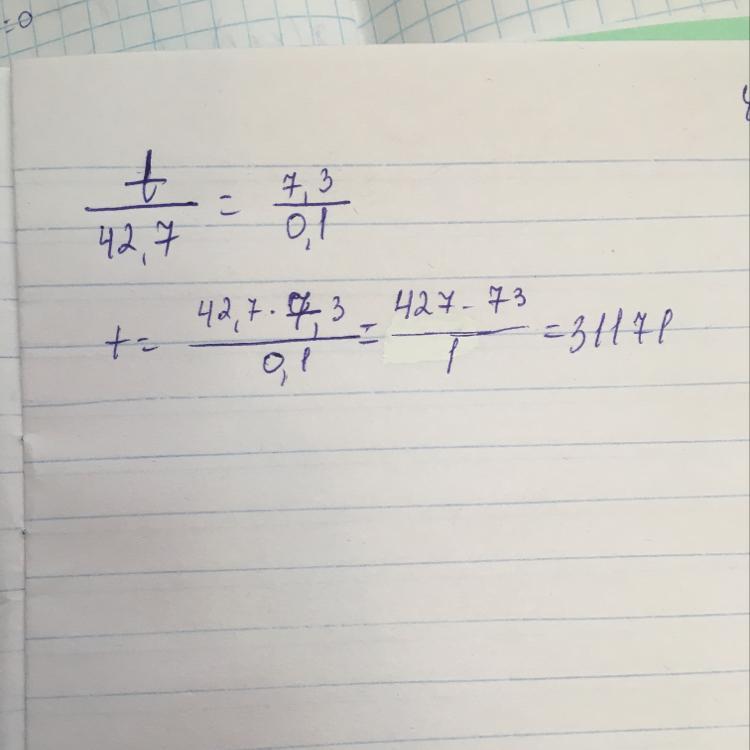 =0
t/42,7 = 7,3/0,1
t = 42,7 · 7,3/0,1 = 427 - 73/1 = 31171